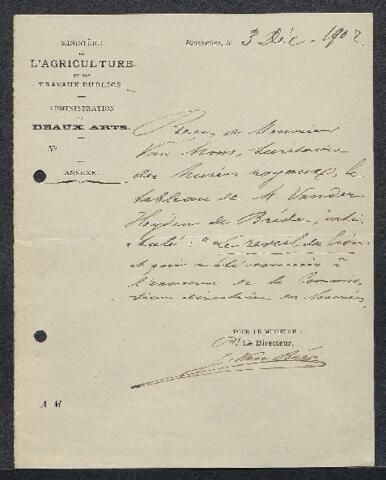 MINISTÈRE
DE
L'AGRICULTURE
ET DES
TRAVAUX PUBLICS
ADMINISTRATION
DES
BEAUX-ARTS.
N°
ANNEXE
Bruxelles, le 3 Déc. 1902
Reçu de Monsieur
Van Mons, secrétaire
des Musées royaux, le
tableau de M Vander
Heyden de Bréda, inti-
tulé : "Le réveil du lion"
et qui a été soumis à
l'examen de la Commis-
sion directrice des Musées
POUR LE MINISTRE :
Le Directeur,
A M